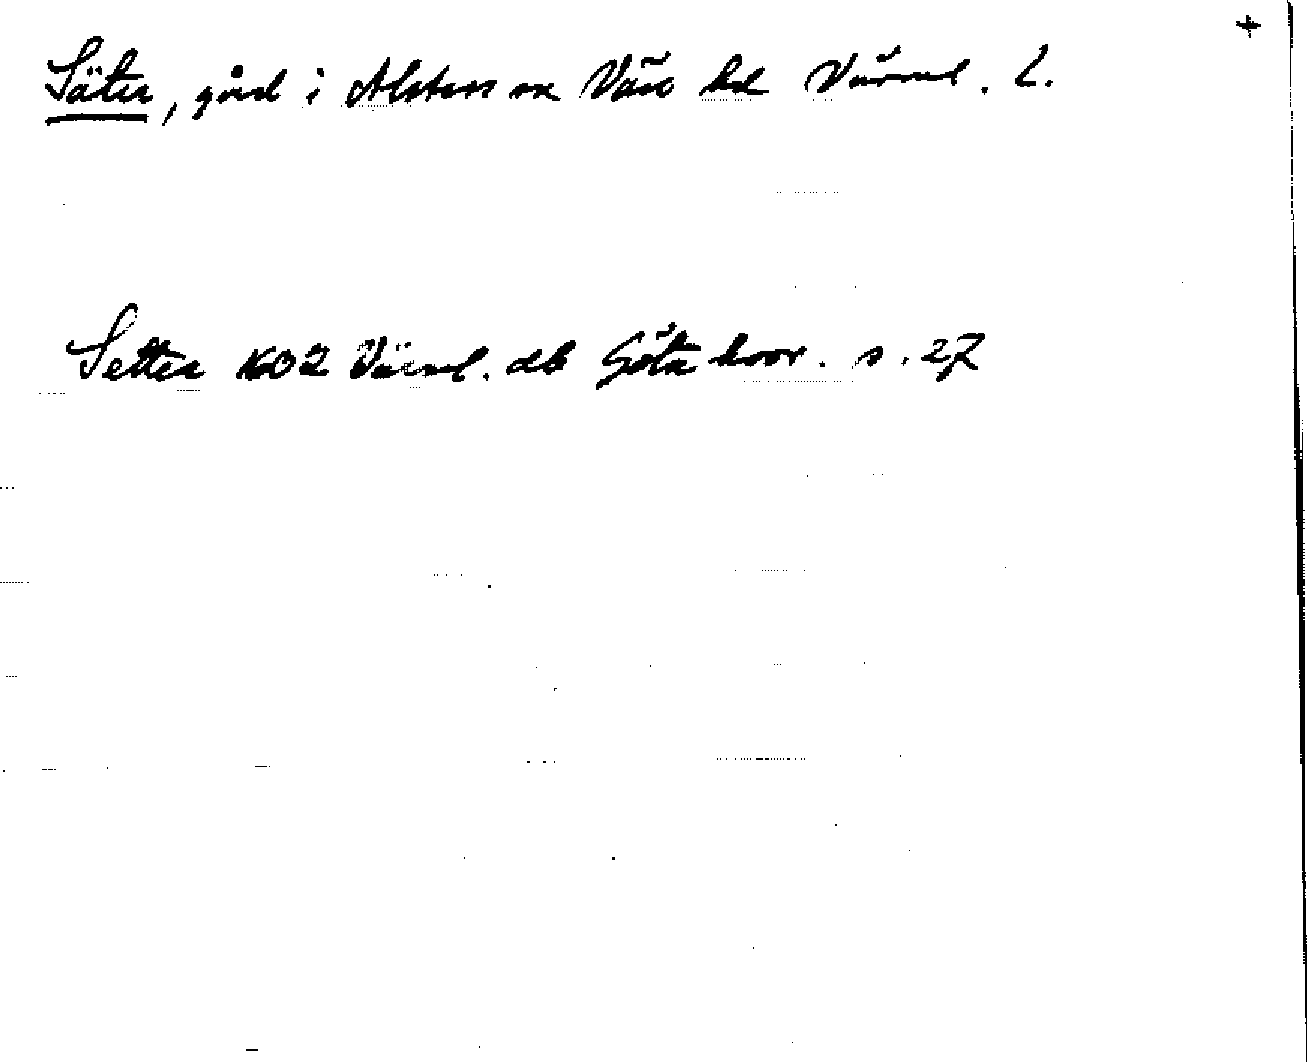 +
Säter, gård i Alsters sn Väse hd Värml. L.
Setter 1602 Värml. db Göta hovr. s. 27